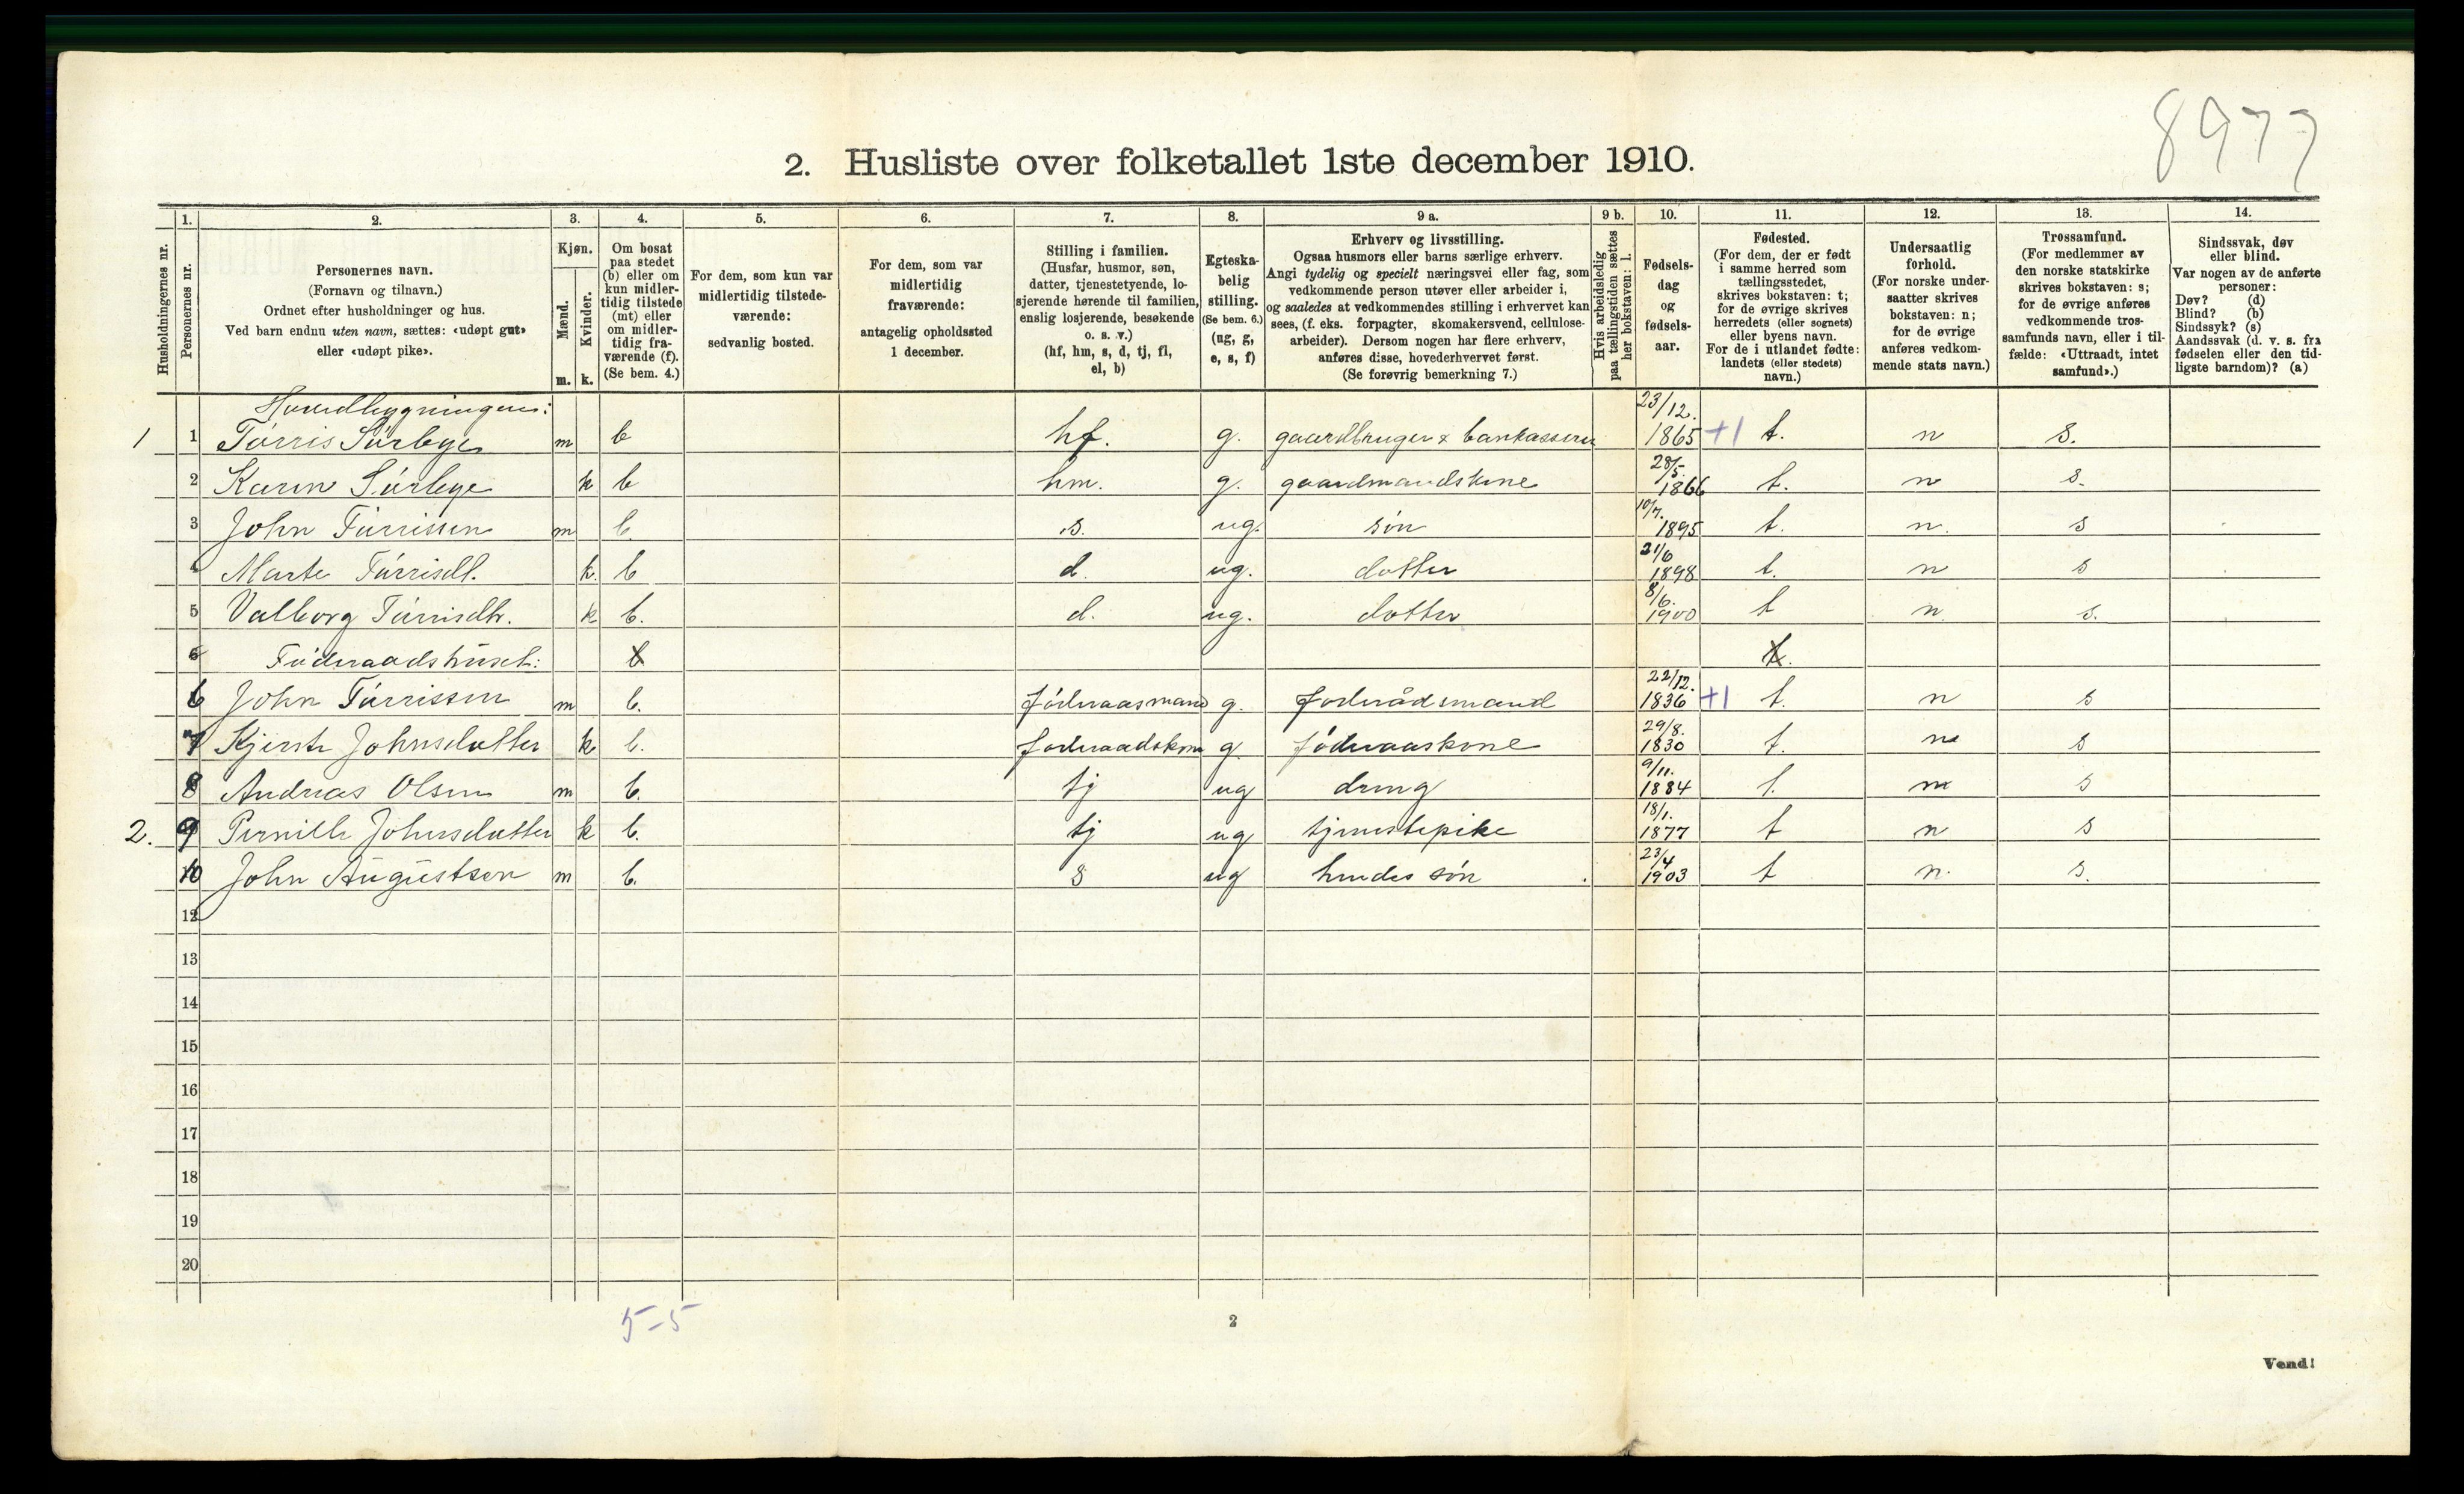 8977
2. Husliste over folketallet 1ste december 1910.
Husholdningernes nr.
1.
Personernes nr.
2.
Personernes navn.
(Fornavn og tilnavn.)
Ordnet efter husholdninger og hus.
Ved barn endnu uten navn, sættes: «udøpt gut»
eller «udøpt pike».
3.
Kjøn.
Mænd.
Kvinder.
m. k.
4.
Om bosat
paa stedet
(b) eller om
kun midler-
tidig tilstede
(mt) eller
om midler-
tidig fra-
værende (f).
(Se bem. 4.)
5.
For dem, som kun var
midlertidig tilstede-
værende:
sedvanlig bosted.
6.
For dem, som var
midlertidig
fraværende:
antagelig opholdssted
1 december.
7.
Stilling i familien.
(Husfar, husmor, søn,
datter, tjenestetyende, lo-
sjerende hørende til familien,
enslig losjerende, besøkende
o. s. v.)
(hf, hm, s, d, tj, fl,
el, b)
8.
Egteska-
belig
stilling.
(Se bem. 6.)
(ug, g,
e, s, f)
9 a.
Erhverv og livsstilling.
Ogsaa husmors eller barns særlige erhverv.
Angi tydelig og specielt næringsvei eller fag, som
vedkommende person utøver eller arbeider i,
og saaledes at vedkommendes stilling i erhvervet kan
sees, (f. eks. forpagter, skomakersvend, cellulose-
arbeider). Dersom nogen har flere erhverv,
anføres disse, hovederhvervet først.
(Se forøvrig bemerkning 7.)
9 b.
Hvis arbeidsledig
paa tællingstiden sættes
her bokstaven: l.
10.
Fødsels-
dag
og
fødsels-
aar.
11.
Fødested.
(For dem, der er født
i samme herred som
tællingsstedet,
skrives bokstaven: t;
for de øvrige skrives
herredets (eller sognets)
eller byens navn.
For de i utlandet fødte:
landets (eller stedets)
navn.)
12.
Undersaatlig
forhold.
(For norske under-
saatter skrives
bokstaven: n;
for de øvrige
anføres vedkom-
mende stats navn.)
13.
Trossamfund.
(For medlemmer av
den norske statskirke
skrives bokstaven: s;
for de øvrige anføres
vedkommende tros-
samfunds navn, eller i til-
fælde: «Uttraadt, intet
samfund».)
14.
Sindssvak, døv
eller blind.
Var nogen av de anførte
personer:
Døv? (d)
Blind? (b)
Sindssyk? (s)
Aandssvak (d. v. s. fra
fødselen eller den tid-
ligste barndom)? (a)
Hovedbygningen:
1 1 Tørris Sørbye m b hf. g. gaardbruger & bankasserer 23/12. 1865 +1 t. n s.
2 Karen Sørbye k b hm. g. gaardmandskone 28/5. 1866 t. n s.
3 John Tørrissen m b. s. ug. søn 10/7. 1895 t. n. s
4 Marte Tørrisdt. k. b d. ug. datter 21/6 1898 t. n s
5 Valborg Tørrisdtr. k b. d. ug. datter 8/6. 1900 t n s.
6 Føderaadshuset: b t.
6 John Tørrissen m b. føderaasmand g. foderådsmand 22/12. 1836 +1 t. n s
7 Kjersti Johnsdatter k b. foderaadskone g føderaaskone 29/8. 1830 t. n s
8 Andreas Olsen m b. tj ug dreng 9/11. 1884 t. n s
2. 9 Pernille Johnsdatter k b. tj ug tjenestepike 18/1. 1877 t n s
10 John Augustsen m b. s ug hendes søn 23/4 1903 t n. s.
12
13
14
15
16
17
18
19
20
5-5
2
Vend!